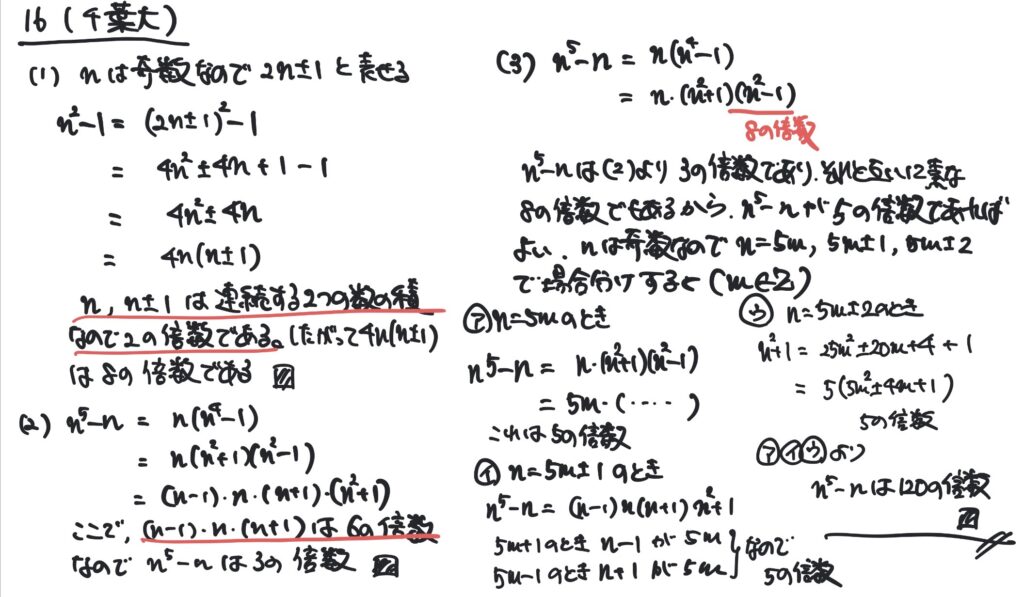 16 (千葉大)
(1) nは奇数なので 2n±1 と表せる
n²-1 = (2n±1)²-1
= 4n²±4n+1-1
= 4n²±4n
= 4n(n±1)
n, n±1 は連続する2つの数の積
なので2の倍数である。したがって4n(n±1)
は8の倍数である
(2) n⁵-n = n(n⁴-1)
= n(n²+1)(n²-1)
= (n-1)・n・(n+1)・(n²+1)
ここで, (n-1)・n・(n+1)は6の倍数
なので n⁵-n は3の倍数
(3) n⁵-n = n(n⁴-1)
= n・(n²+1)(n²-1)
8の倍数
n⁵-nは(2)より3の倍数であり、それと互いに素な
8の倍数でもあるから、n⁵-nが5の倍数であれば
よい. nは奇数なのでn=5m, 5m±1, 5m±2
で場合分けすると (m∈Z)
㋐n=5mのとき
n⁵-n = n・(n²+1)(n²-1)
= 5m・(‥‥)
これは5の倍数
㋑ n=5m±1のとき
n⁵-n = (n-1)n(n+1)n²+1
5m+1のとき n-1が5m
5m-1のとき n+1が5m
なので
5の倍数
㋒ n=5m±2のとき
n²+1 = 25m²±20m+4+1
= 5(5m²±4m+1)
5の倍数
㋐㋑㋒より
n⁵-nは120の倍数